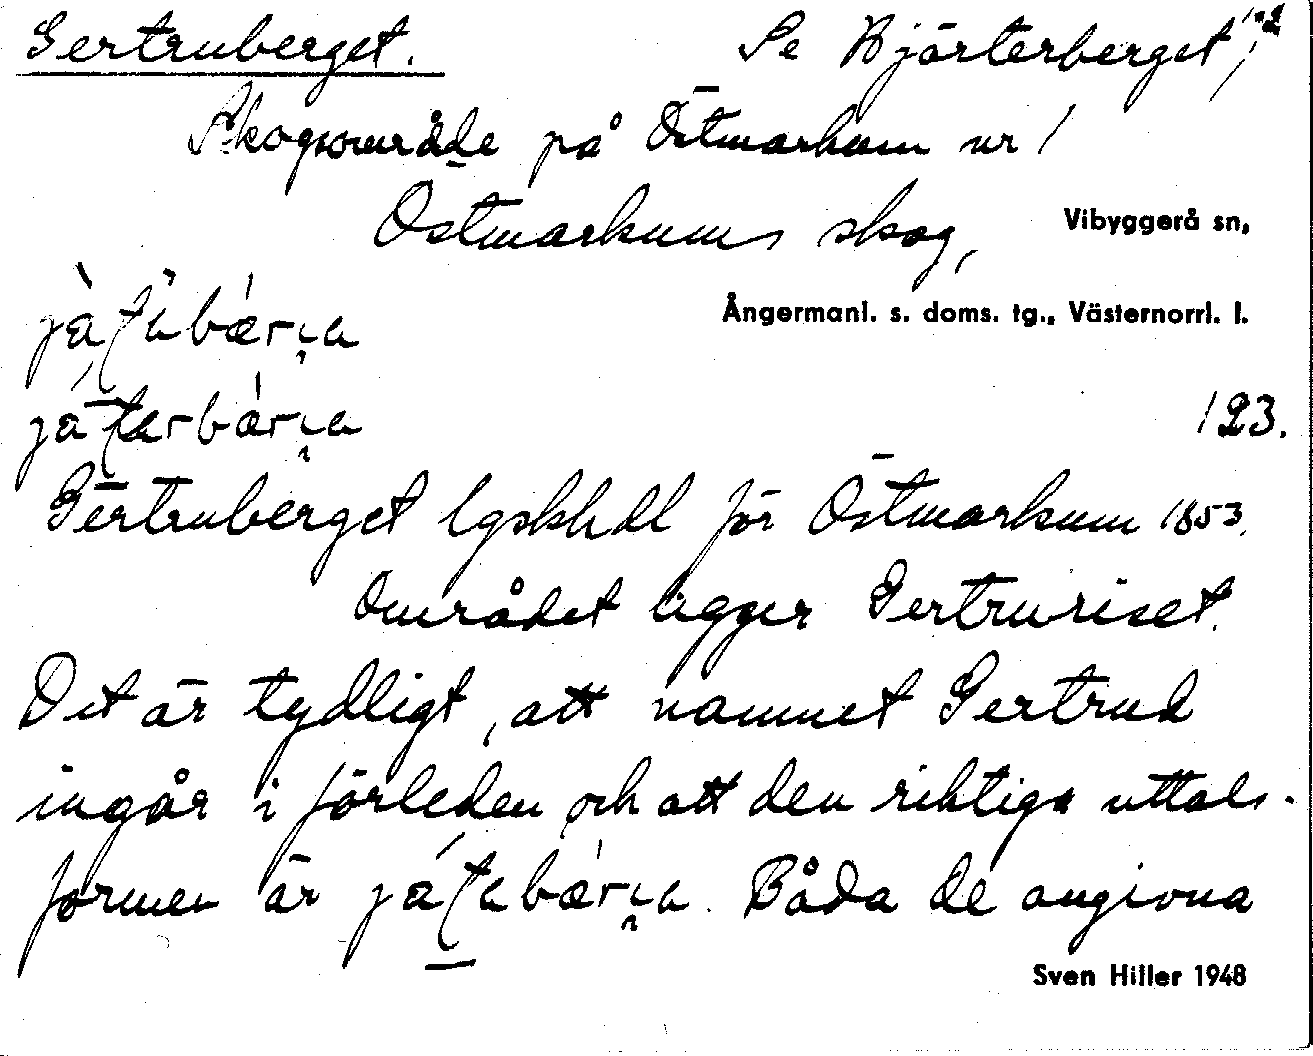 Gertruberget. Se Hjärterberget,
Skogsområde på Östmarkum nr 1
Östmarkums skog, Vibyggerå sn,
Ångermanl. s. doms. tg., Västernorrl. l.
123.
Gertruberget lgskhdl för Östmarkum 1853.
Området ligger Gertruriset.
Det är tydligt, att namnet Gertrud
ingår i förleden och att den riktiga uttals-
formen är Båda de angivna
Sven Hiller 1948